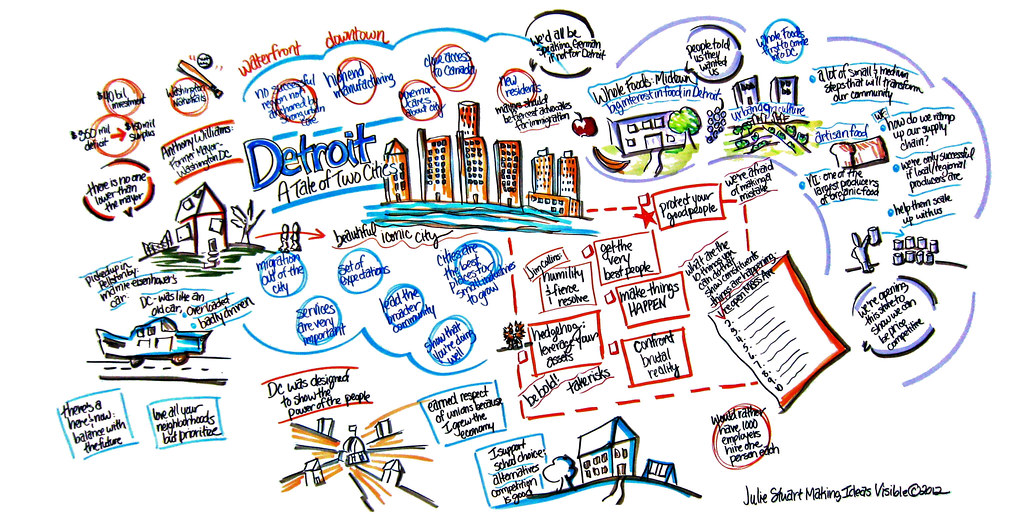 $40 bil
investment
Washington
Nationals
$350 mil
deficit
surplus
Anthony Williams:
Former Mayor-
Washington DC
there is no one
lower than
the mayor
waterfront
downtown
no successful
region not
anchored by
strong urban
core
high end
manufacturing
close access
to Canada
governor
cares
about city
new
residents
mayors should
be the best advocates
for immigration
we'd all be
speaking German
if not for Detroit
Detroit
A Tale of Two Cities
beautiful iconic city
migration
out of the
city
set of
expectations
cities are
the best
places for
small businesses
to grow
services
are very
important
lead the
broader
community
show that
you're doing
well
picked up in
Mamie Eisenhower's
car
DC - was like an
old car, overloaded
badly driven
there's a
here & now:
balance with
the future
love all your
neighborhoods
but prioritize
DC was designed
to show the
power of the people
earned respect
of unions because
I grew the
economy
I support
school choice:
alternatives
competition
is good
Whole Foods: Midtown
big interest in food in Detroit
people told
us they
wanted
us
Whole Foods
first to come
to DC
urban agriculture
a lot of small & medium
steps that will transform
our community
WF
how do we ramp
up our supply
chain?
artisan food
VT: one of the
largest producers
of organic food
we're only successful
if local/regional
producers are
help them scale
up with us
we're opening
this store to
show we can
be price
competitive
we're afraid
of making a
mistake
protect your
good people
Jim Collins:
humility
& fierce
resolve
get the
very
best people
make things
HAPPEN
hedgehog:
leverage your
assets
confront
brutal
reality
be bold!!
take risks
what are the
10 things you
can do that
show constituents
things are happening:
1.
2.
3.
4.
5.
6.
7.
8.
9.
10
would rather
have 1,000
employers
hire one
person each
Julie Stuart Making Ideas Visible © 2012